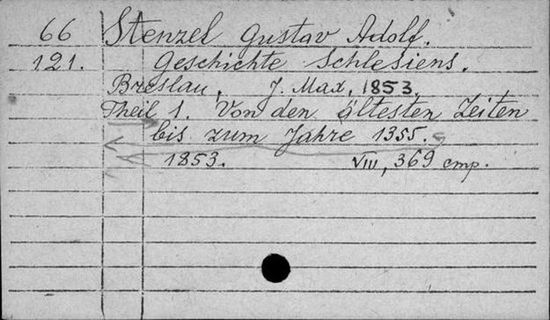 66 Stenzel Gustav Adolf.
121. Geschichte Schlesiens.
Breslau, J. Max, 1853.
Theil 1. Von den ältesten Zeiten
bis zum Jahre 1355.
1853. VIII, 369 cmp.